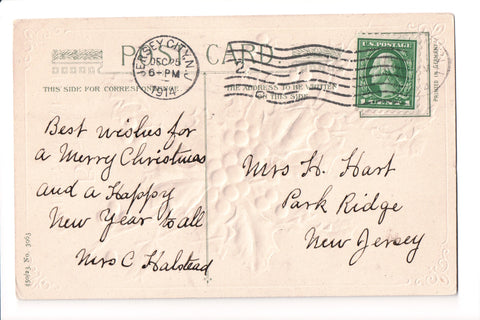 POST CARD
JERSEY CITY, N.J.
DEC 25
6-PM
1914
2
U.S. POSTAGE
1 CENT 1
THIS SIDE FOR CORRESPONDENCE
THE ADDRESS TO BE WRITTEN
ON THIS SIDE
PRINTED IN GERMANY
Best wishes for
a Merry Christmas
and a Happy
New Year to all
Mrs C Halstead
Mrs H. Hart
Park Ridge
New Jersey
No. 3063